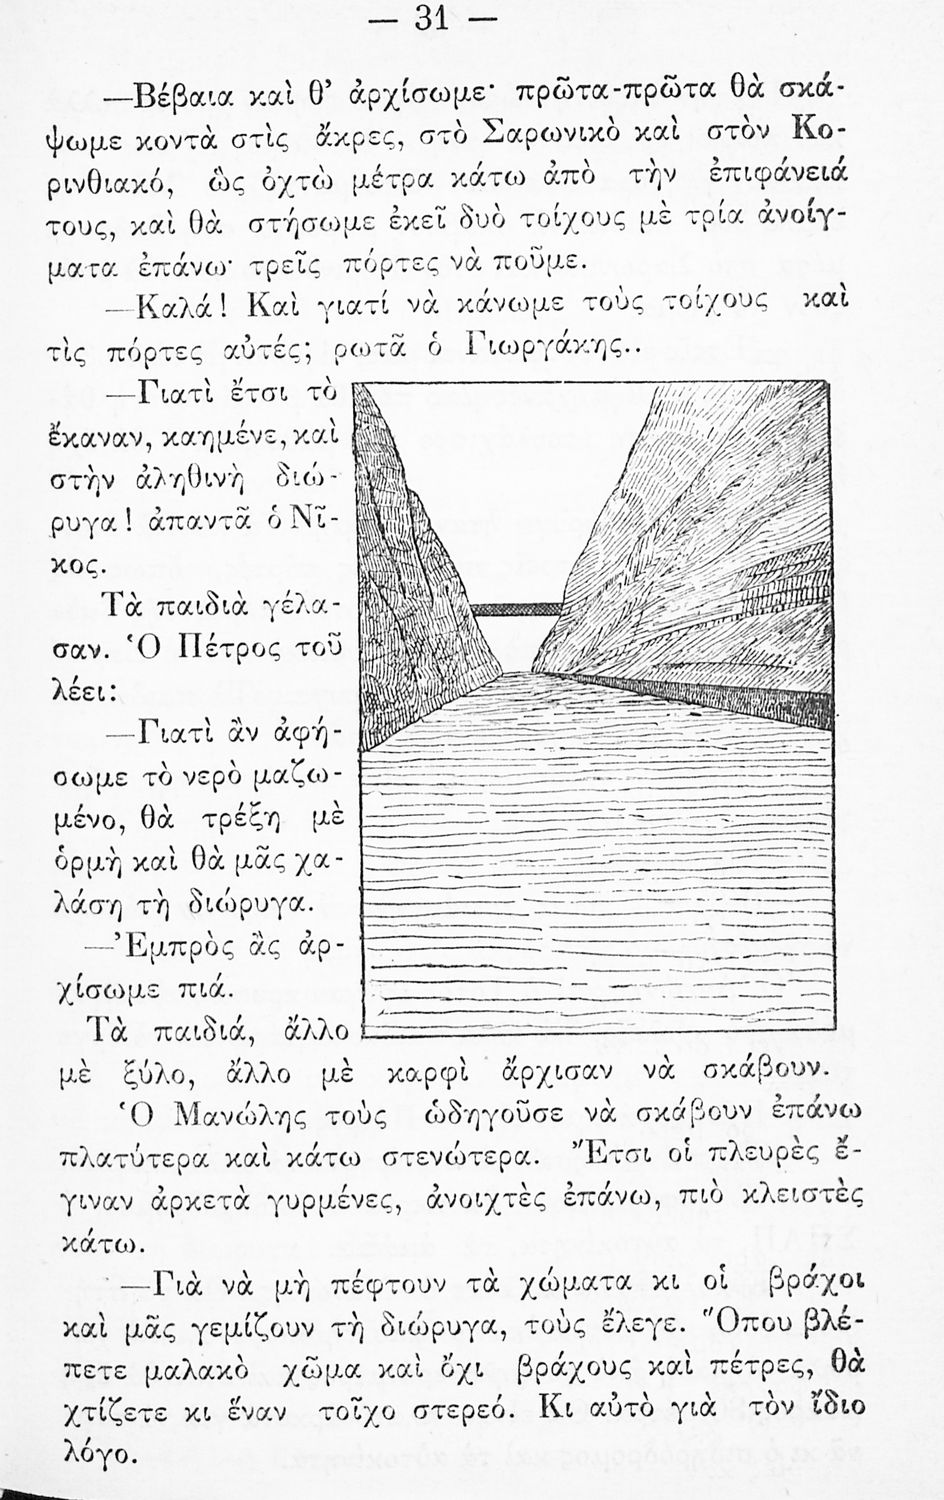 — 31 —
—Βέβαια καὶ θ’ ἀρχίσωμε· πρῶτα-πρῶτα θὰ σκά-
ψωμε κοντὰ στὶς ἄκρες, στὸ Σαρωνικὸ καὶ στὸν Κο-
ρινθιακό, ὣς ὀχτὼ μέτρα κάτω ἀπὸ τὴν ἐπιφάνειά
τους, καὶ θὰ στήσωμε ἐκεῖ δυὸ τοίχους μὲ τρία ἀνοίγ-
ματα ἐπάνω· τρεῖς πόρτες νὰ ποῦμε.
—Καλά! Καὶ γιατί νὰ κάνωμε τοὺς τοίχους καὶ
τὶς πόρτες αὐτές; ρωτᾶ ὁ Γιωργάκης..
—Γιατὶ ἔτσι τὸ
ἔκαναν, καημένε, καὶ
στὴν ἀληθινὴ διώ-
ρυγα! ἀπαντᾶ ὁ Νῖ-
κος.
Τὰ παιδιὰ γέλα-
σαν. Ὁ Πέτρος τοῦ
λέει:
—Γιατὶ ἂν ἀφή-
σωμε τὸ νερὸ μαζω-
μένο, θὰ τρέξη μὲ
ὁρμὴ καὶ θὰ μᾶς χα-
λάση τὴ διώρυγα.
—Ἐμπρὸς ἂς ἀρ-
χίσωμε πιά.
Τὰ παιδιά, ἄλλο
μὲ ξύλο, ἄλλο μὲ καρφὶ ἄρχισαν νὰ σκάβουν.
Ὁ Μανώλης τοὺς ὡδηγοῦσε νὰ σκάβουν ἐπάνω
πλατύτερα καὶ κάτω στενώτερα. Ἔτσι οἱ πλευρὲς ἔ-
γιναν ἀρκετὰ γυρμένες, ἀνοιχτὲς ἐπάνω, πιὸ κλειστὲς
κάτω.
—Γιὰ νὰ μὴ πέφτουν τὰ χώματα κι οἱ βράχοι
καὶ μᾶς γεμίζουν τὴ διώρυγα, τοὺς ἔλεγε. Ὅπου βλέ-
πετε μαλακὸ χῶμα καὶ ὄχι βράχους καὶ πέτρες, θὰ
χτίζετε κι ἕναν τοῖχο στερεό. Κι αὐτὸ γιὰ τὸν ἴδιο
λόγο.